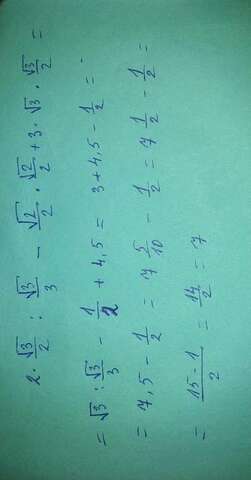 2 · √3/2 : √3/3 − √2/2 · √2/2 + 3 · √3 · √3/2 =
= √3 : √3/3 − 1/2 + 4,5 = 3 + 4,5 − 1/2 =
= 7,5 − 1/2 = 7 5/10 − 1/2 = 7 1/2 − 1/2 =
= 15 − 1/2 = 14/2 = 7